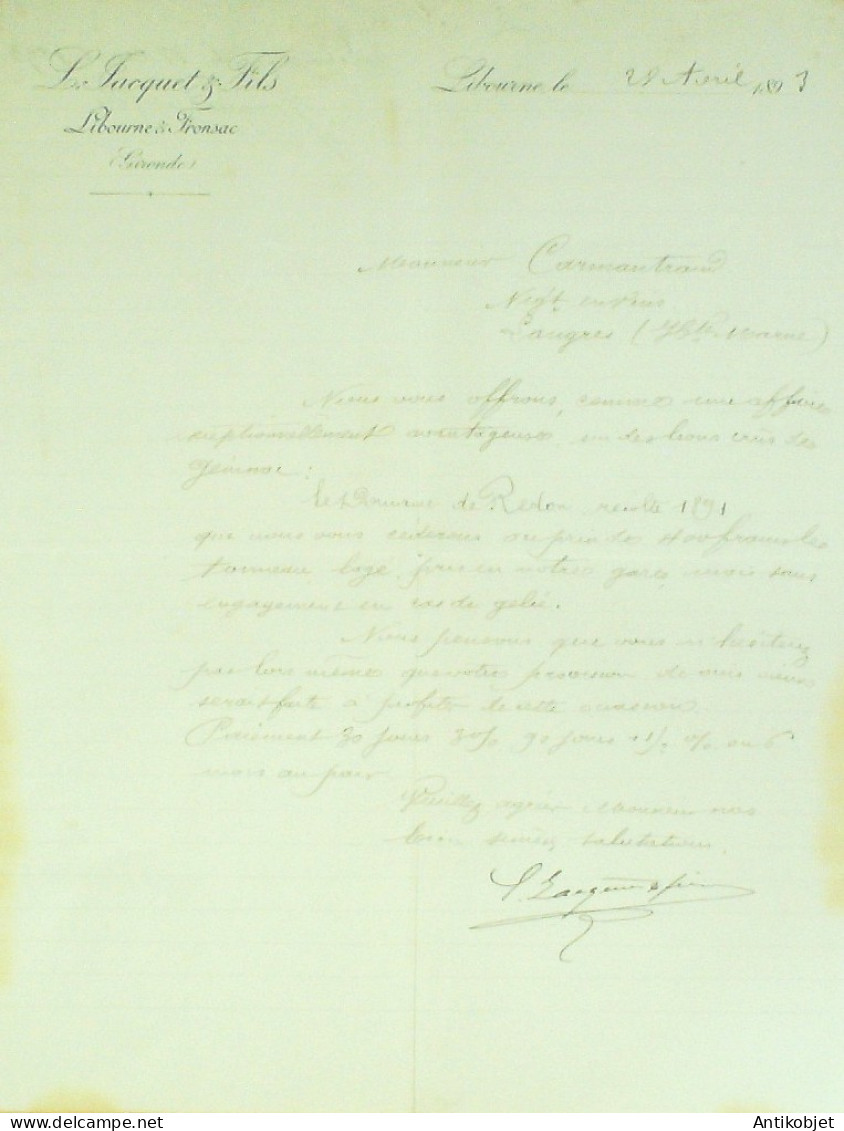 L. Jacquet & Fils
Libourne & Fronsac
(Gironde)
Libourne, le 28 Avril 1893
Monsieur Carmantrand
Négt en vins
Langres (Hte Marne)
Nous vous offrons, comme une affaire
exceptionnellement avantageuse, un des bons crus de
Génissac :
le Domaine de Redon récolte 1891
que nous vous céderons au prix de 400 francs le
tonneau logé, pris en notre gare, mais sans
engagement en cas de gelée.
Nous pensons que vous n'hésiterez
pas lors même que votre provision de vins
serait faite à profiter de cette occasion.
Paiement 30 jours 3% 90 jours 1 1/2 % ou 6
mois au pair
Veuillez agréer Monsieur nos
bien sincères salutations.
L. Jacquet & fils
www.delcampe.net
Antikobjet